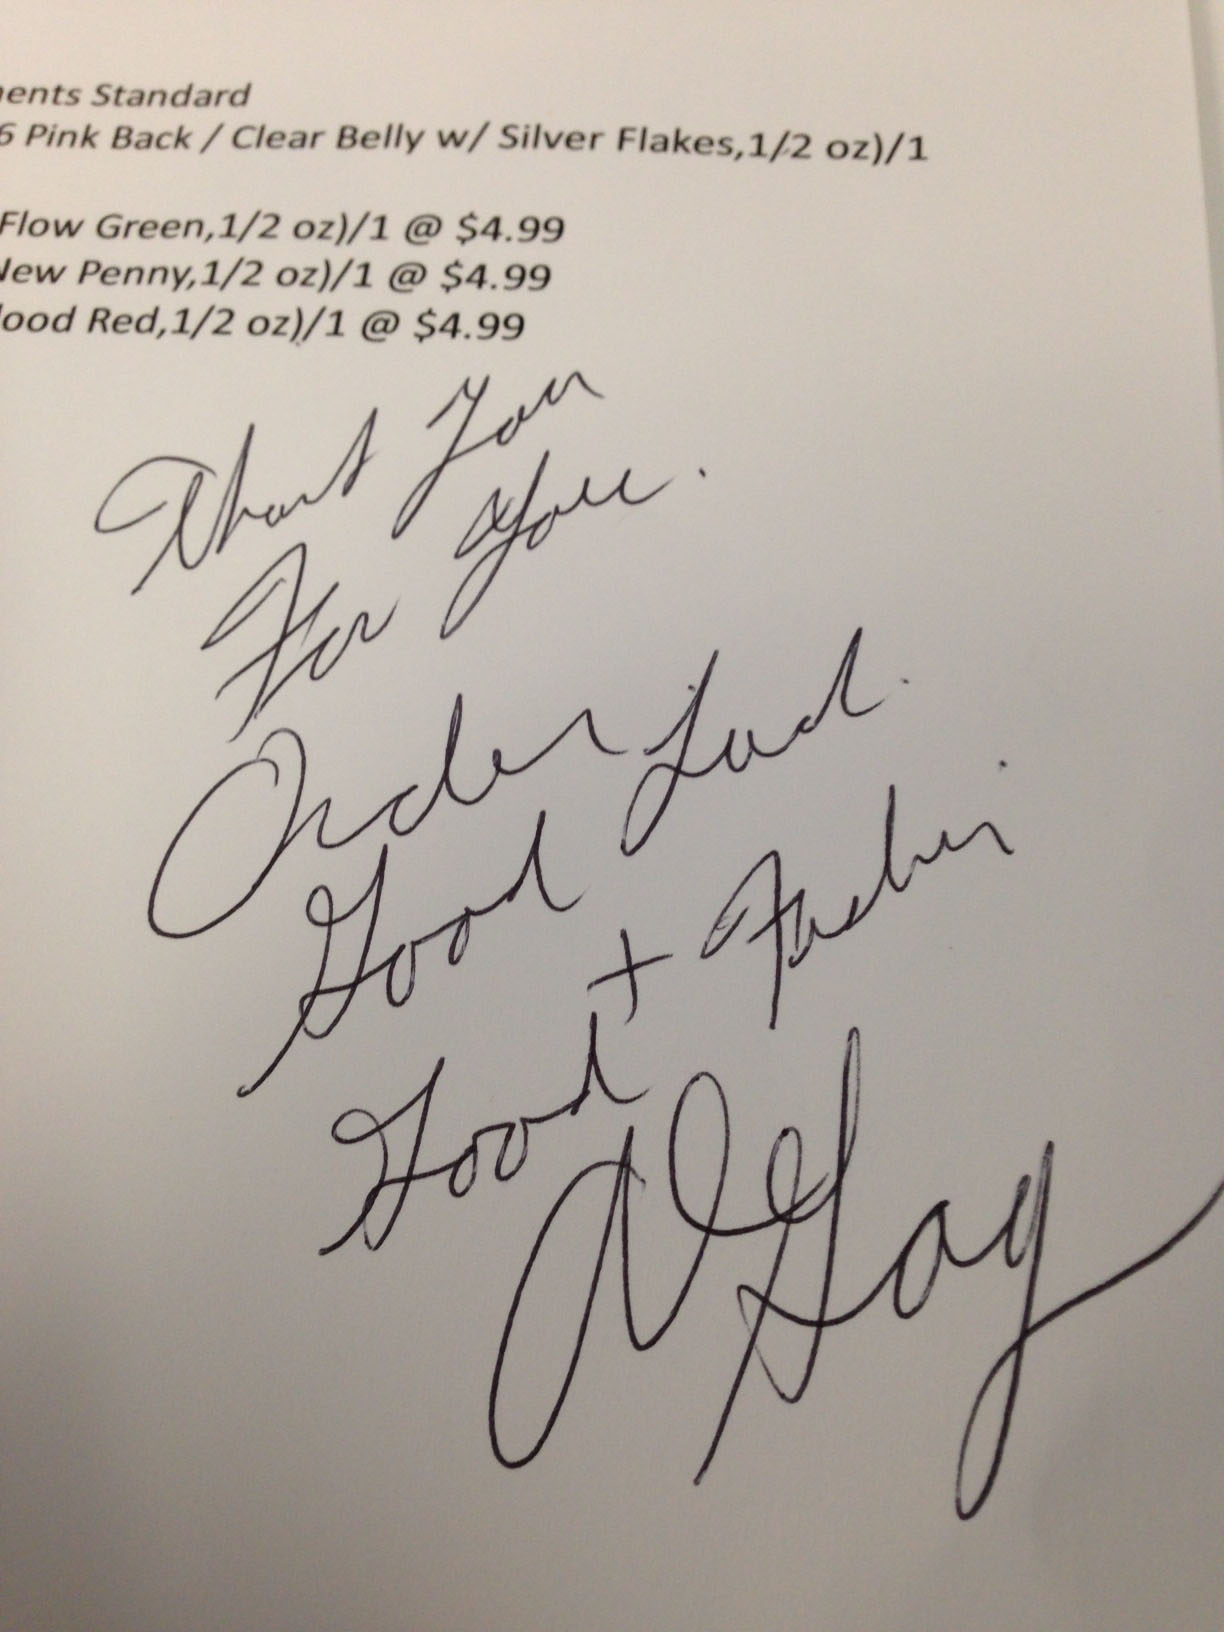 ents Standard
6 Pink Back / Clear Belly w/ Silver Flakes,1/2 oz)/1
Flow Green,1/2 oz)/1 @ $4.99
New Penny,1/2 oz)/1 @ $4.99
lood Red,1/2 oz)/1 @ $4.99
Thank You
For You.
Order
Good Luck.
+
Good